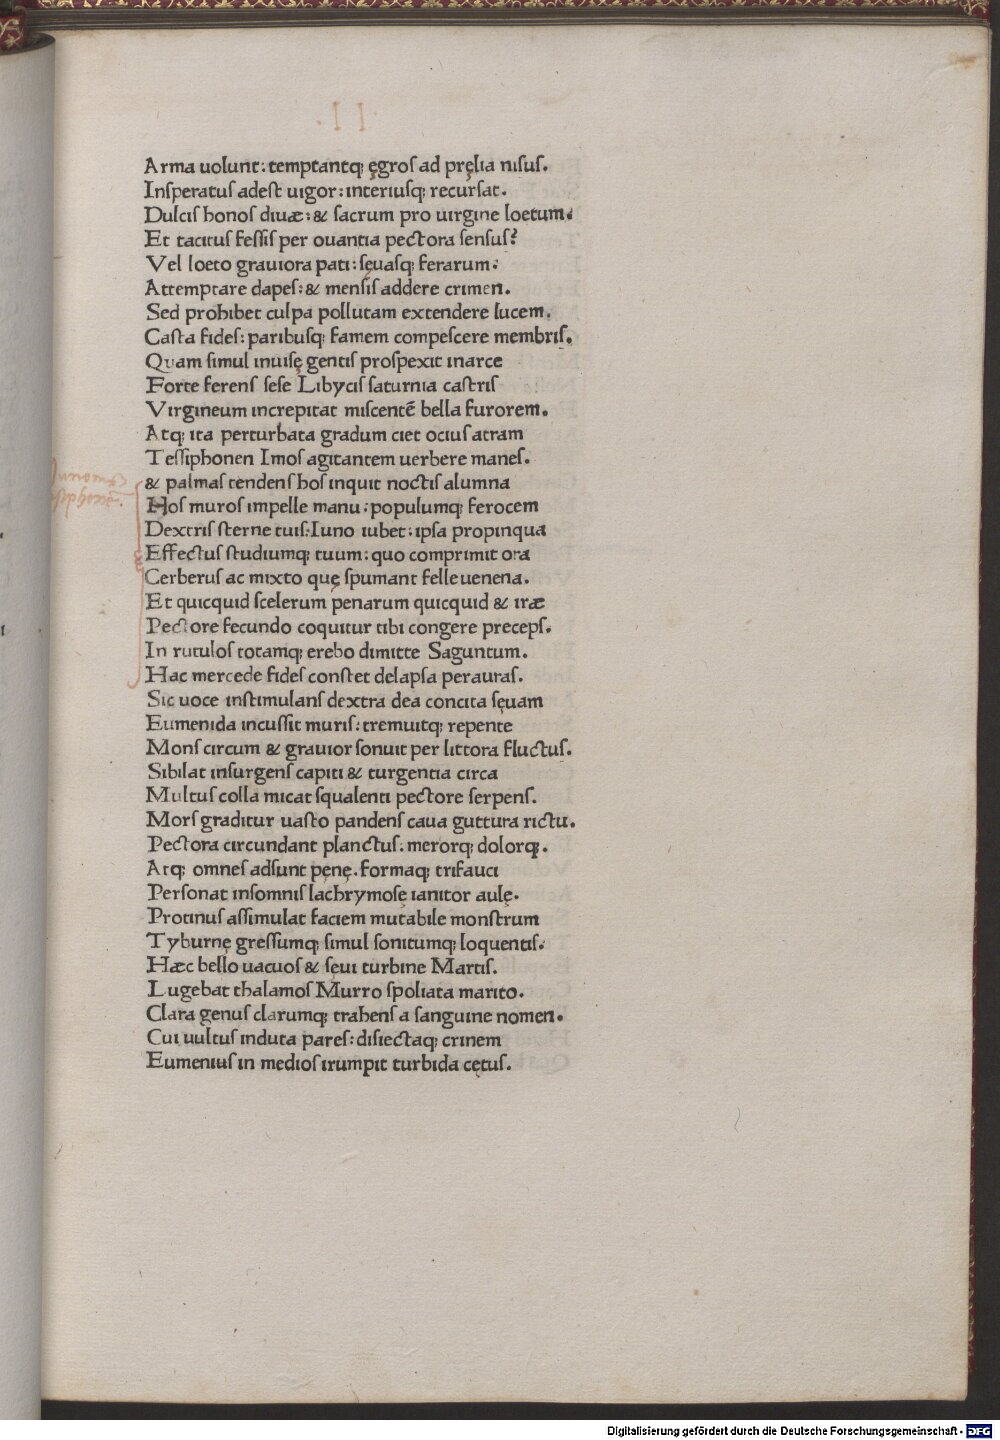 .II.
Arma uolunt: temptantq; ęgros ad pręlia nisus.
Insperatus adest uigor: interiusq; recursat.
Dulcis honos diuæ: & sacrum pro uirgine loetum.
Et tacitus fessis per ouantia pectora sensus?
Vel loeto grauiora pati: sęuasq; ferarum:
Attemptare dapes: & mensis addere crimen.
Sed prohibet culpa pollutam extendere lucem.
Casta fides: paribusq; famem compescere membris.
Quam simul inuisę gentis prospexit inarce
Forte ferens sese Libycis saturnia castris
Virgineum increpitat miscentē bella furorem.
Atq; ita perturbata gradum ciet ocius atram
Tessiphonen Imos agitantem uerbere manes.
& palmas tendens hos inquit noctis alumna
Hos muros impelle manu: populumq; ferocem
Dextris sterne tuis: Iuno iubet: ipsa propinqua
Effectus studiumq; tuum: quo comprimit ora
Cerberus ac mixto quę spumant felle uenena.
Et quicquid scelerum penarum quicquid & iræ
Pectore fecundo coquitur tibi congere preceps.
In rutulos totamq; erebo dimitte Saguntum.
Hac mercede fides constet delapsa perauras.
Sic uoce instimulans dextra dea concita sęuam
Eumenida incussit muris: tremuitq; repente
Mons circum & grauior sonuit per littora fluctus.
Sibilat insurgens capiti & turgentia circa
Multus colla micat squalenti pectore serpens.
Mors graditur uasto pandens caua guttura rictu.
Pectora circundant planctus: merorq; dolorq;.
Atq; omnes adsunt pęnę. formaq; trifauci
Personat insomnis lachrymosę ianitor aulę.
Protinus assimulat faciem mutabile monstrum
Tyburnę gressumq; simul sonitumq; loquentis.
Hæc bello uacuos & sęui turbine Martis.
Lugebat thalamos Murro spoliata marito.
Clara genus clarumq; trahens a sanguine nomen.
Cui uultus induta pares: disiectaq; crinem
Eumenius in medios irumpit turbida cętus.
Digitalisierung gefördert durch die Deutsche Forschungsgemeinschaft - DFG